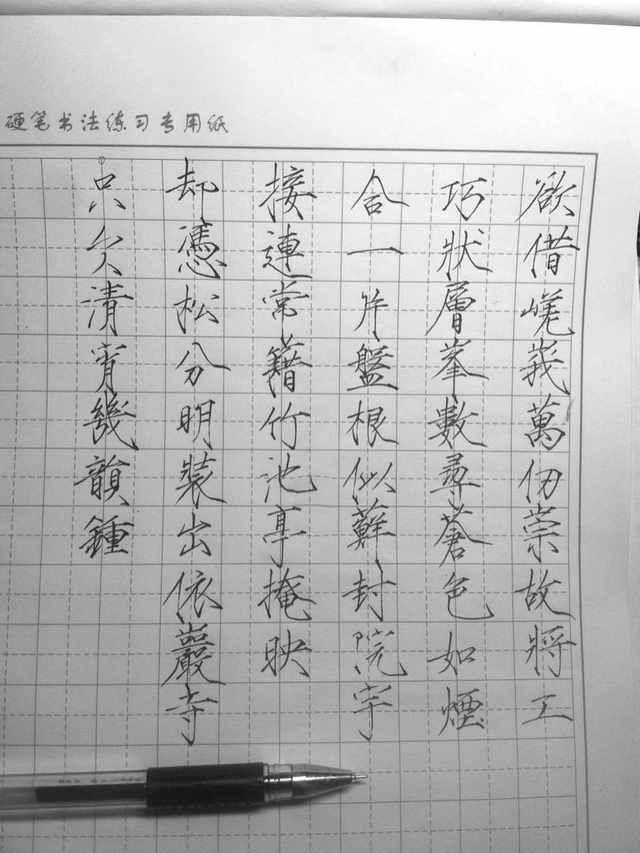 硬笔书法练习专用纸
欲借嵯峨萬仞崇故將工
巧狀層峯數尋蒼色如煙
合一片盤根似蘚封院宇
接連常藉竹池亭掩映
却憑松分明裝出依巖寺
只欠清宵幾韻鍾